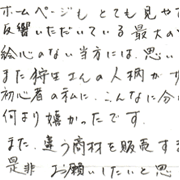 ホームページも とても見やす
反響いただいている最大の
絵心のない当方には、思い
また 弥生さんの人柄がす
初心者の私に、こんなに分
何より嬉かったです。
また、違う商材を販売する
是非 お願いしたいと思